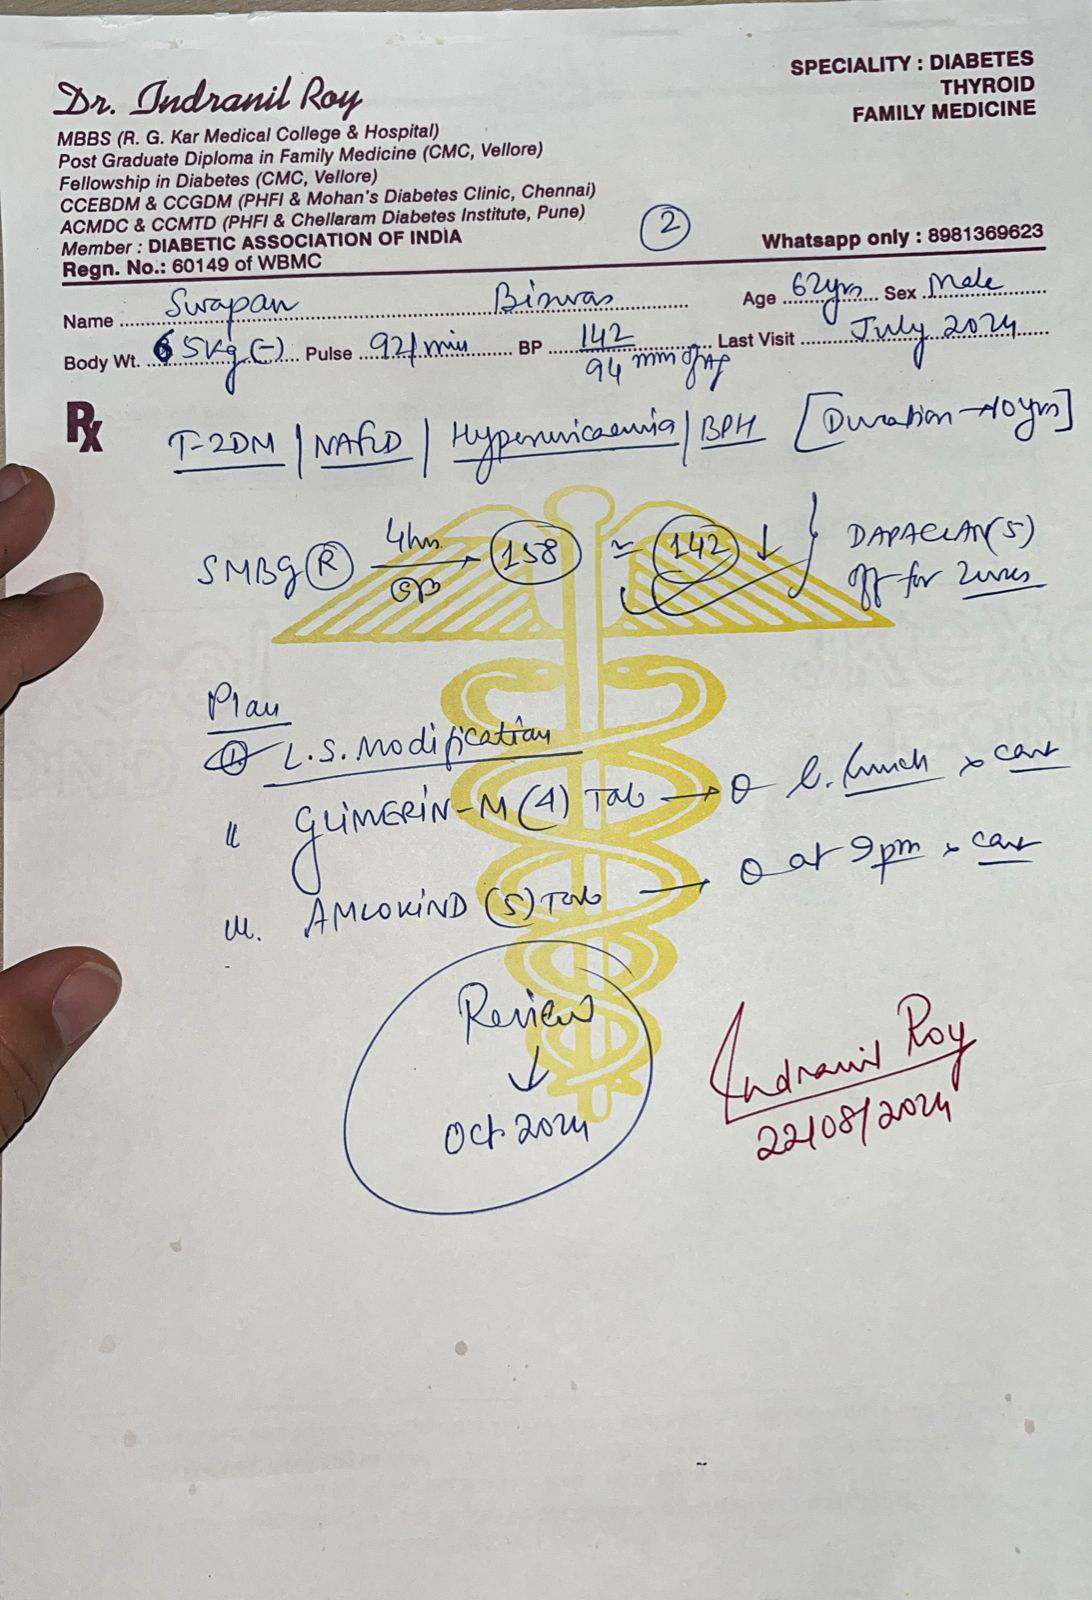 Dr. Indranil Roy
MBBS (R. G. Kar Medical College & Hospital)
Post Graduate Diploma in Family Medicine (CMC, Vellore)
Fellowship in Diabetes (CMC, Vellore)
CCEBDM & CCGDM (PHFI & Mohan's Diabetes Clinic, Chennai)
ACMDC & CCMTD (PHFI & Chellaram Diabetes Institute, Pune)
Member : DIABETIC ASSOCIATION OF INDIA
Regn. No.: 60149 of WBMC
SPECIALITY : DIABETES
THYROID
FAMILY MEDICINE
2
Whatsapp only : 8981369623
Name Swapan Biswas Age 62yrs Sex Male
Body Wt. 65kg (-) Pulse 92/min BP 142/94 mm of Hg Last Visit July 2024
Rx
T-2DM | NAFLD | Hyperuricaemia | BPH [Duration → 10yrs]
SMBG (R) 4hrs → 158 ≃ 142 ↓ } DAPAGLAN (5)
off for
Plan
L.S. Modification
ii GLIMERIN-M (4) Tab → b. lunch x cont
iii. AMLOKIND (5) Tab → at 9pm x cont
Review
↓
Oct 2024
Indranil Roy
22/08/2024